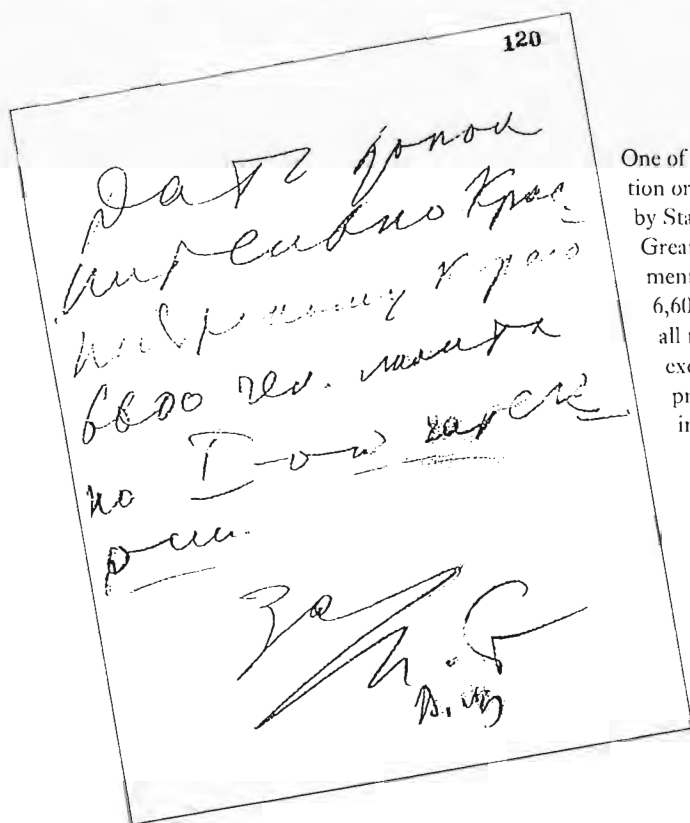 120
Дать допол
нительно Крас-
ноярскому краю
6600 чел. лимита
по I-ой катего
рии.
За
One of
tion or
by Sta
Great
men
6,60
all
exc
pr
i